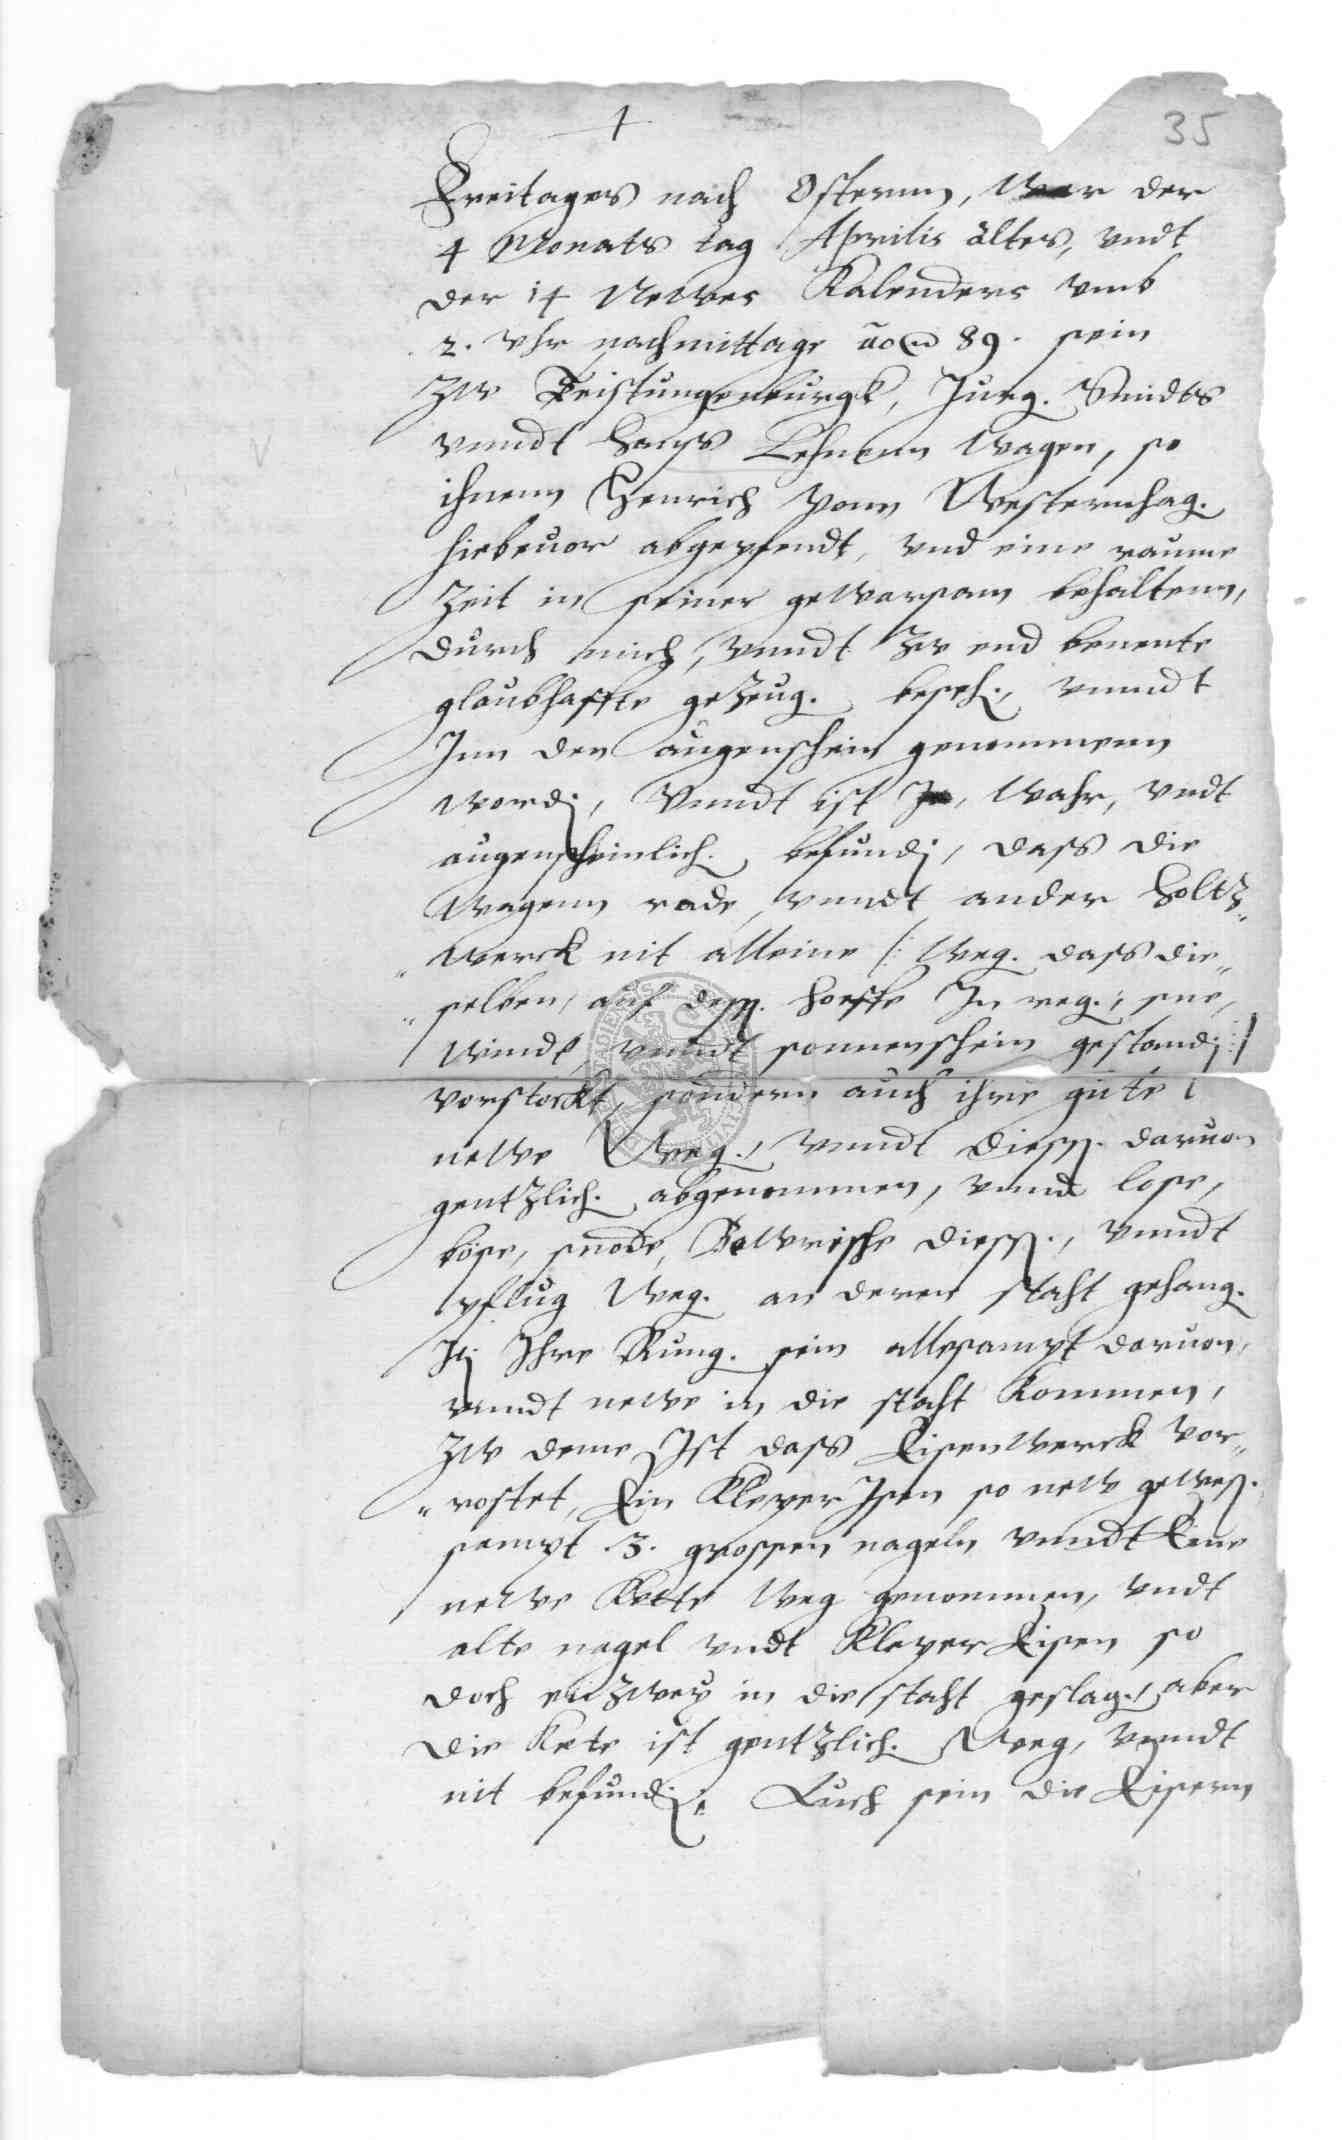 35
Freitages nach Osternn, War der
4 Monats tag Aprilis altes, vndt
der 14 Newes Kalenders vmb
2. Vhr nachmittage 89. sein
Zw Teistungenburgk, Jurg. Smidts
vnndt Hanß Lehnen Wagen, so
ihnenn Henrich vonn Westernhag.
hiebeuor abgepfendt, vnd eine raume
Zeit in seiner gewarsam behaltenn,
durch mich, vnndt Zw end benente
glaubhaffte geZeug. beseh., vnndt
Inn den augenschein genommenn
word., Vnndt ist wahr, vndt
augenscheinlich. befund., daß die
Wagenn rade, vnndt ander Holtz„
„werck nit alleine /: Weg. daß die„
„selben, auf dem Hoeffe In reg., sne,
Windt, vnndt sonnenschein gestand. :/
vorstockt, sondern auch ihre gute
newe Weg., Vnndt Diess. daruon
gentzlich. abgenommen, vnnd lose,
böse, snode, Bewrische diess., vnndt
pflug Weg. an deren staht gehang.
It. Ihre Rung. sein allesampt daruon,
vnndt newe in die staht kommen,
Zw deme Ist daß Eisenwerck vor„
„rostet, Ein Kleper Isen so new geweß.
sampt .3. grossen nageln vnndt Eine
newe Kette Weg genommen, vndt
alte nagel vndt Kleper Eisen so
doch eitzwey in die staht geslag., aber
die Kete ist gentzlich. Weg, vnndt
nit befund. Auch sein die Eisern